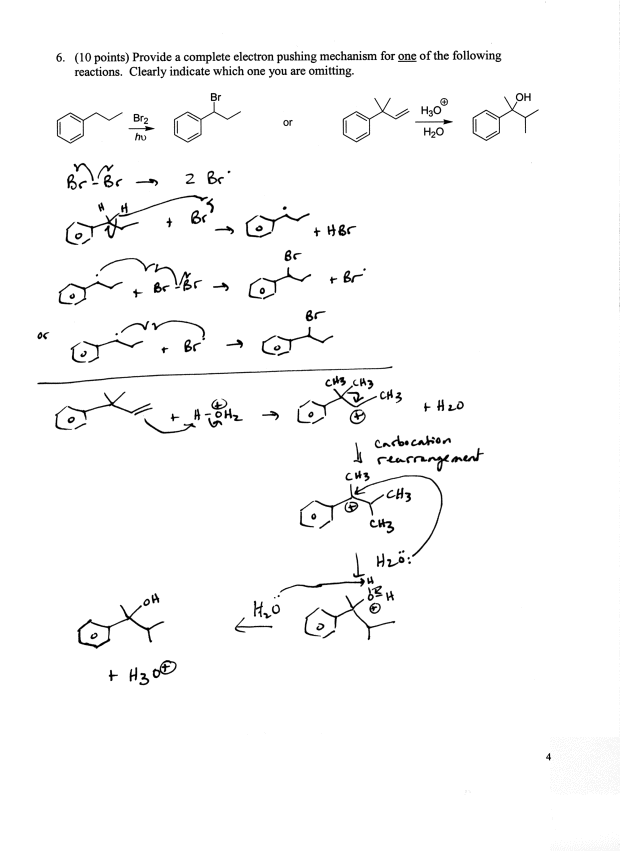 6. (10 points) Provide a complete electron pushing mechanism for one of the following
reactions. Clearly indicate which one you are omitting.
Br2
hν
Br
or
H3O⊕
H2O
OH
Br-Br → 2 Br·
H H + Br· → + HBr
+ Br-Br → Br + Br·
or + Br· → Br
+ H-ÖH2 ⊕ → CH3 CH3 CH3 ⊕ + H2O
↓ Carbocation
rearrangement
CH3
CH3
⊕
CH3
↓ H2Ö:
H
Ö H
⊕
H2Ö
←
OH
+ H3O⊕
4